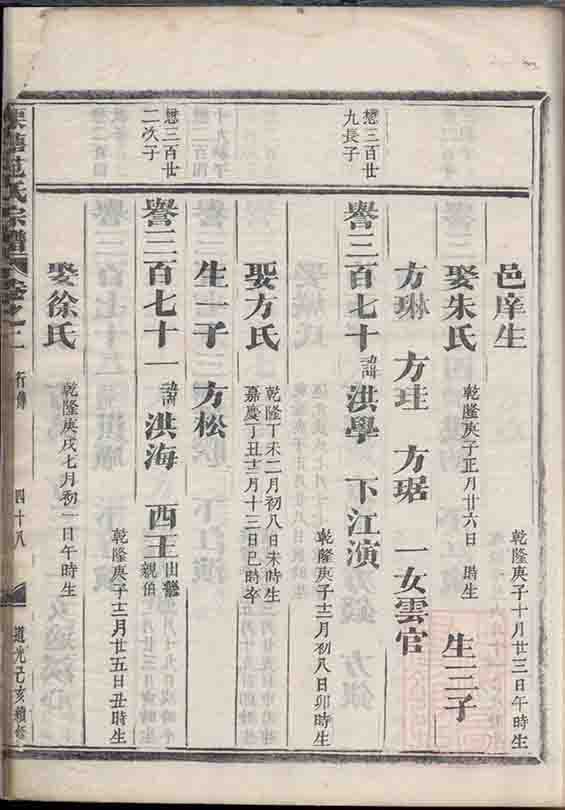 邑庠生 乾隆庚子十月廿三日午時生
娶朱氏 乾隆庚子正月廿六日 時生 生三子
方琳 方珪 方琚 一女雲官
懋三百廿九長子
譽三百七十 諱洪學 下江演
乾隆庚子十二月初八日卯時生
娶方氏 乾隆丁未二月初八日未時生
嘉慶丁丑十二月十三日巳時卒
生一子 方松
懋三百廿二次子
譽三百七十一 諱洪海 西王
親伯
乾隆庚子十二月廿五日丑時生
娶徐氏 乾隆庚戌七月初一日午時生
范氏宗譜 卷之二 行傳 四十八 道光己亥續修